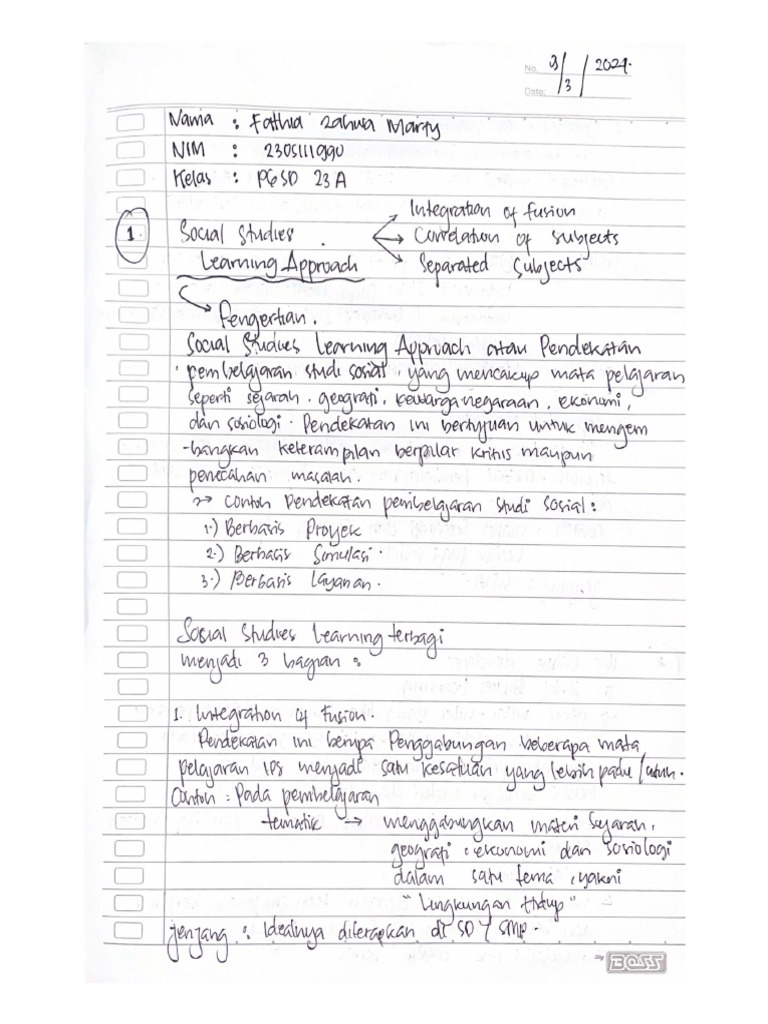 No. 9/3/2024.
Date:
Nama : Fathia Zahwa Marty
NIM : 2305111990
Kelas : PGSD 23 A
1. Social Studies Learning Approach
Integration of fusion
Correlation of subjects
Separated subjects
Pengertian.
Social Studies Learning Approach atau Pendekatan
pembelajaran studi sosial, yang mencakup mata pelajaran
seperti sejarah, geografi, kewarganegaraan, ekonomi,
dan sosiologi. Pendekatan ini bertujuan untuk mengem
-bangkan keterampilan berpikir kritis maupun
pemecahan masalah.
→ Contoh pendekatan pembelajaran studi sosial :
1.) Berbasis Proyek
2.) Berbasis Simulasi.
3.) Berbasis Layanan.
Social Studies Learning terbagi
menjadi 3 bagian :
1. Integration of Fusion.
Pendekatan ini berupa Penggabungan beberapa mata
pelajaran IPS menjadi satu kesatuan yang lebih padu / utuh.
Contoh : Pada pembelajaran
tematik → menggabungkan materi sejarah,
geografi, ekonomi dan sosiologi
dalam satu tema, yakni
"Lingkungan Hidup"
Jenjang : Idealnya diterapkan di SD / SMP.
BOSS